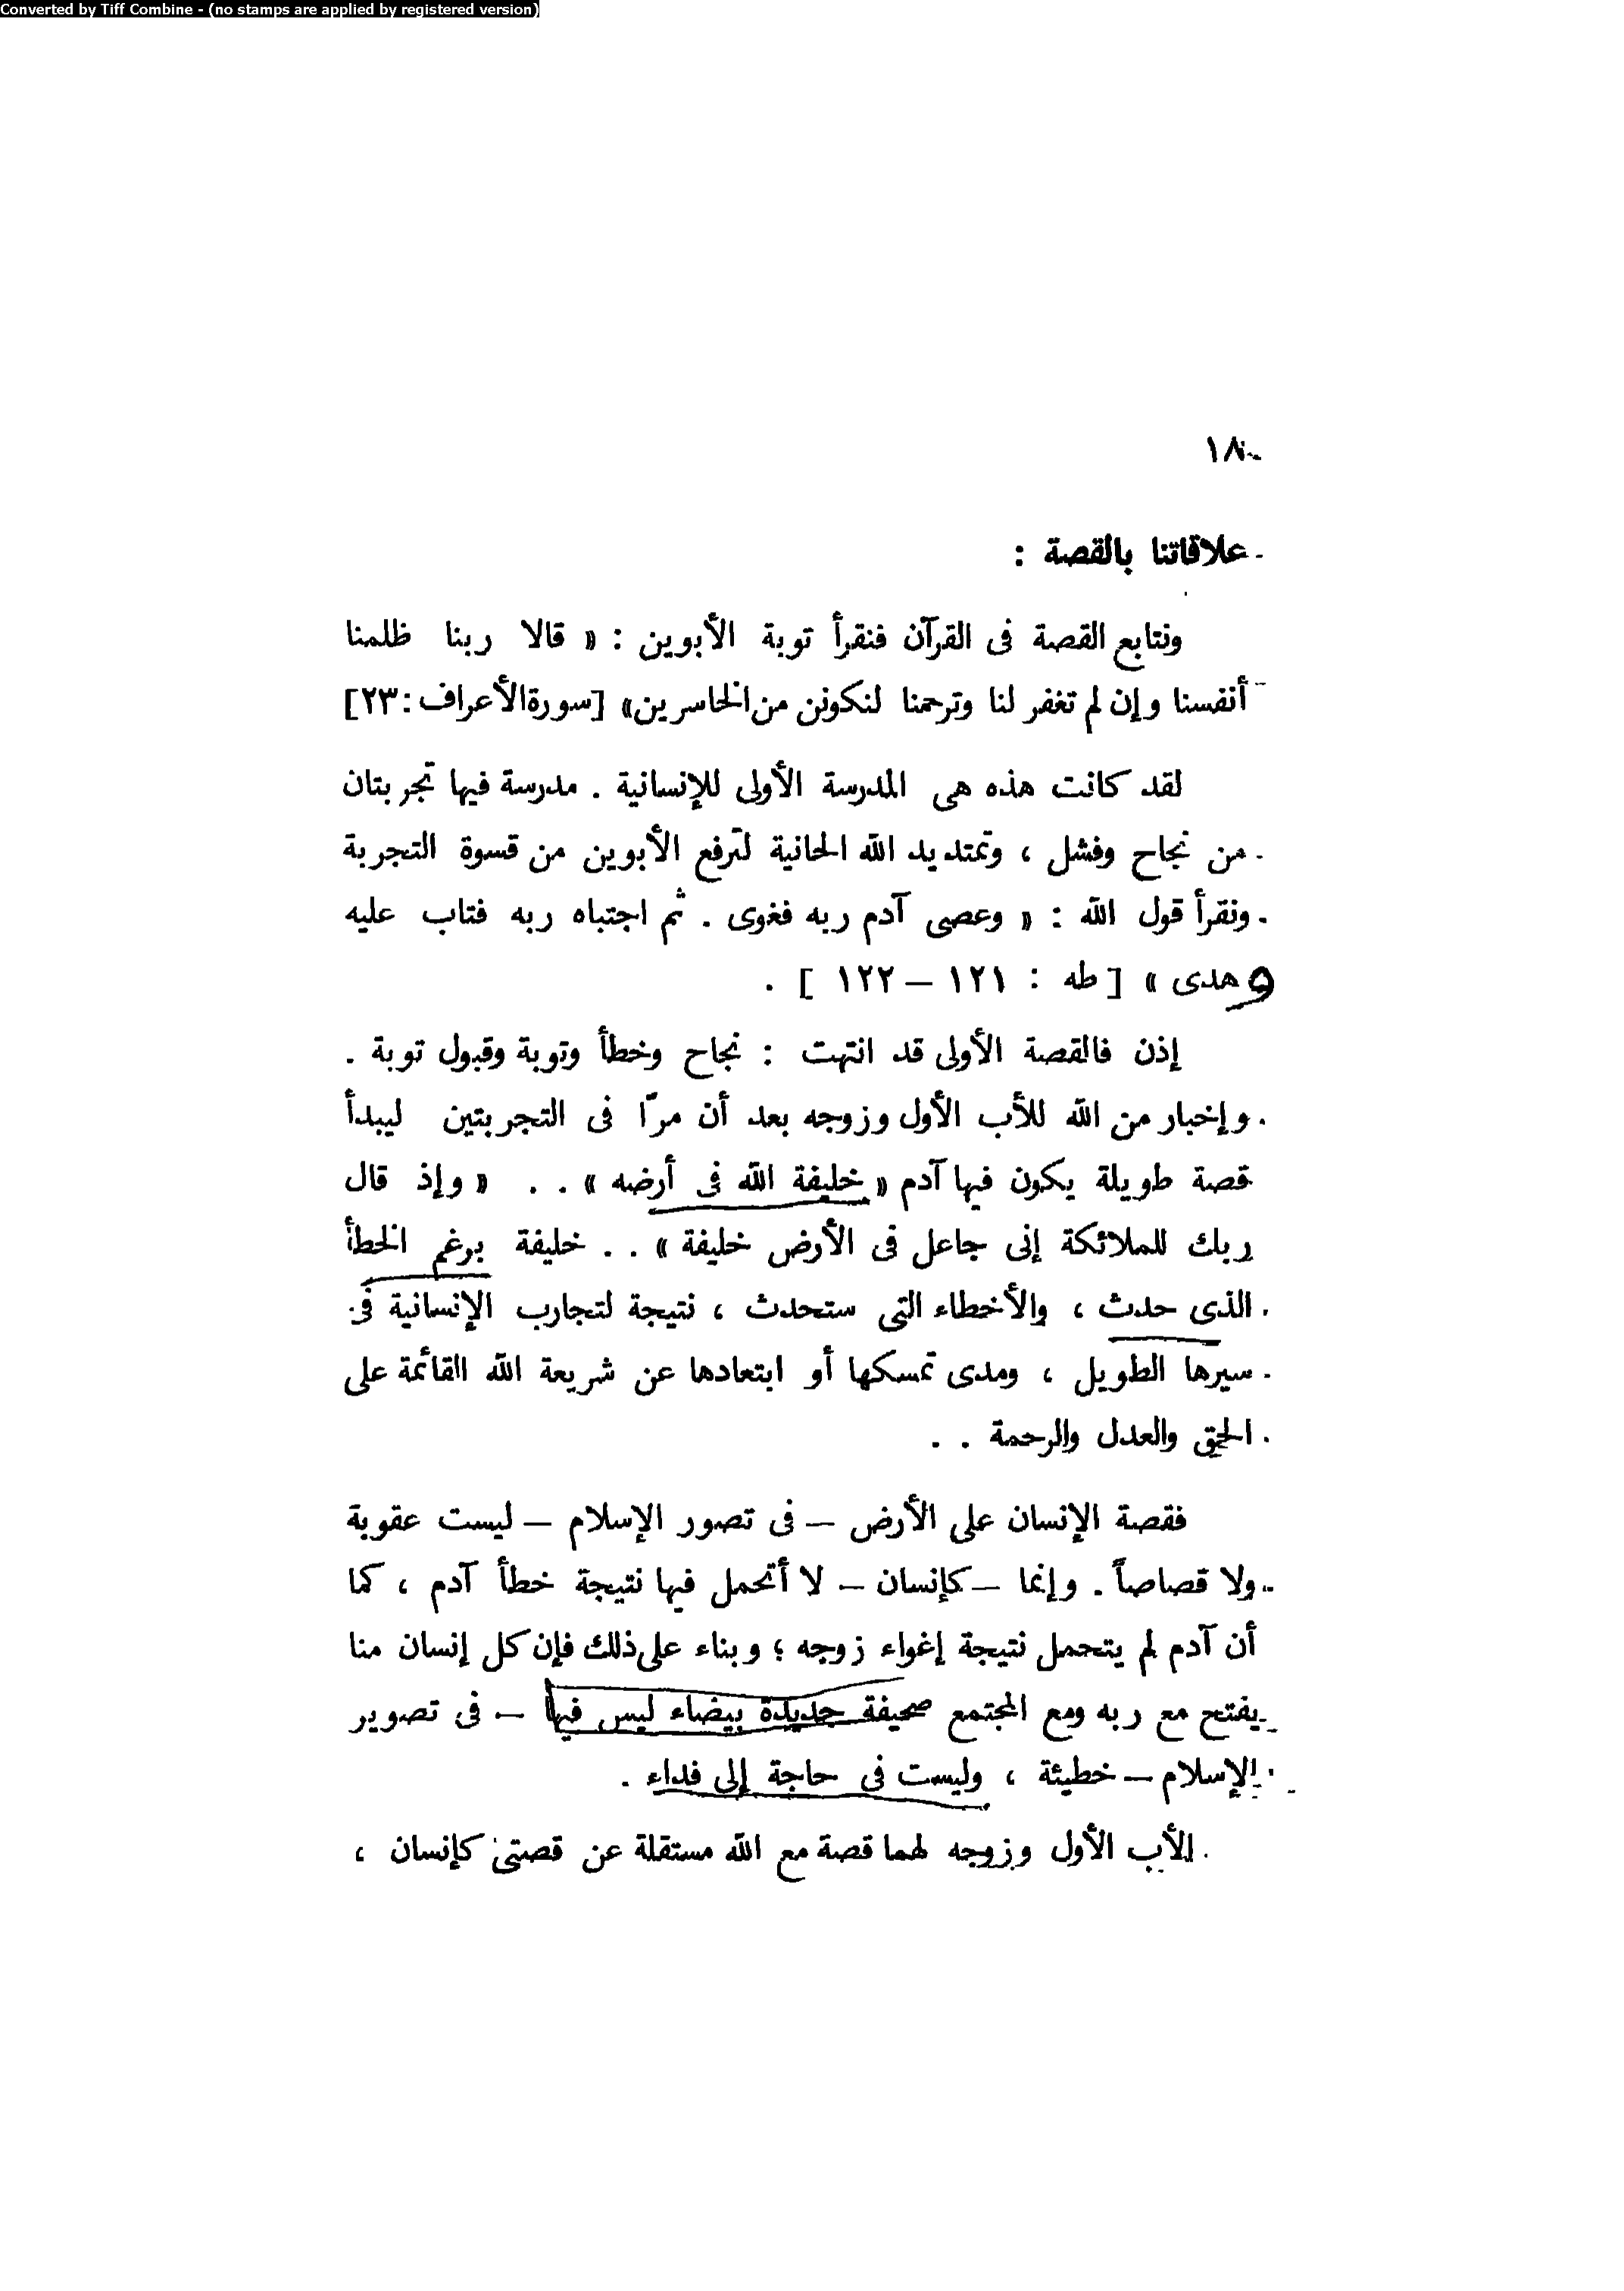 Converted by Tiff Combine - (no stamps are applied by registered version)
١٨٠
علاقاتنا بالقصة :
ونتابع القصة فى القرآن فنقرأ توبة الأبوين : « قالا ربنا ظلمنا
أنفسنا وإن لم تغفر لنا وترحمنا لنكونن من الخاسرين» [سورة الأعراف : ٢٣]
لقد كانت هذه هى المدرسة الأولى للإنسانية . مدرسة فيها تجربتان
من نجاح وفشل ، وتمتد يد الله الحانية لترفع الأبوين من قسوة التجربة
ونقرأ قول الله : « وعصى آدم ربه فغوى . ثم اجتباه ربه فتاب عليه
وهدى » [ طه : ١٢١ – ١٢٢ ] .
إذن فالقصة الأولى قد انتهت : نجاح وخطأ وتوبة وقبول توبة .
وإخبار من الله للأب الأول وزوجه بعد أن مرّا فى التجربتين ليبدأ
قصة طويلة يكون فيها آدم « خليفة الله فى أرضه » . . « وإذ قال
ربك للملائكة إنى جاعل فى الأرض خليفة » . . خليفة برغم الخطأ
الذى حدث ، والأخطاء التى ستحدث ، نتيجة لتجارب الإنسانية فى
سيرها الطويل ، ومدى تمسكها أو ابتعادها عن شريعة الله القائمة على
الحق والعدل والرحمة . .
فقصة الإنسان على الأرض – فى تصور الإسلام – ليست عقوبة
ولا قصاصاً . وإنما – كإنسان – لا أتحمل فيها نتيجة خطأ آدم ، كما
أن آدم لم يتحمل نتيجة إغواء زوجه ؛ وبناء على ذلك فإن كل إنسان منا
يفتح مع ربه ومع المجتمع صحيفة جديدة بيضاء ليس فيها – فى تصوير
الإسلام – خطيئة ، وليست فى حاجة إلى فداء .
الأب الأول وزوجه لهما قصة مع الله مستقلة عن قصتى كإنسان ،